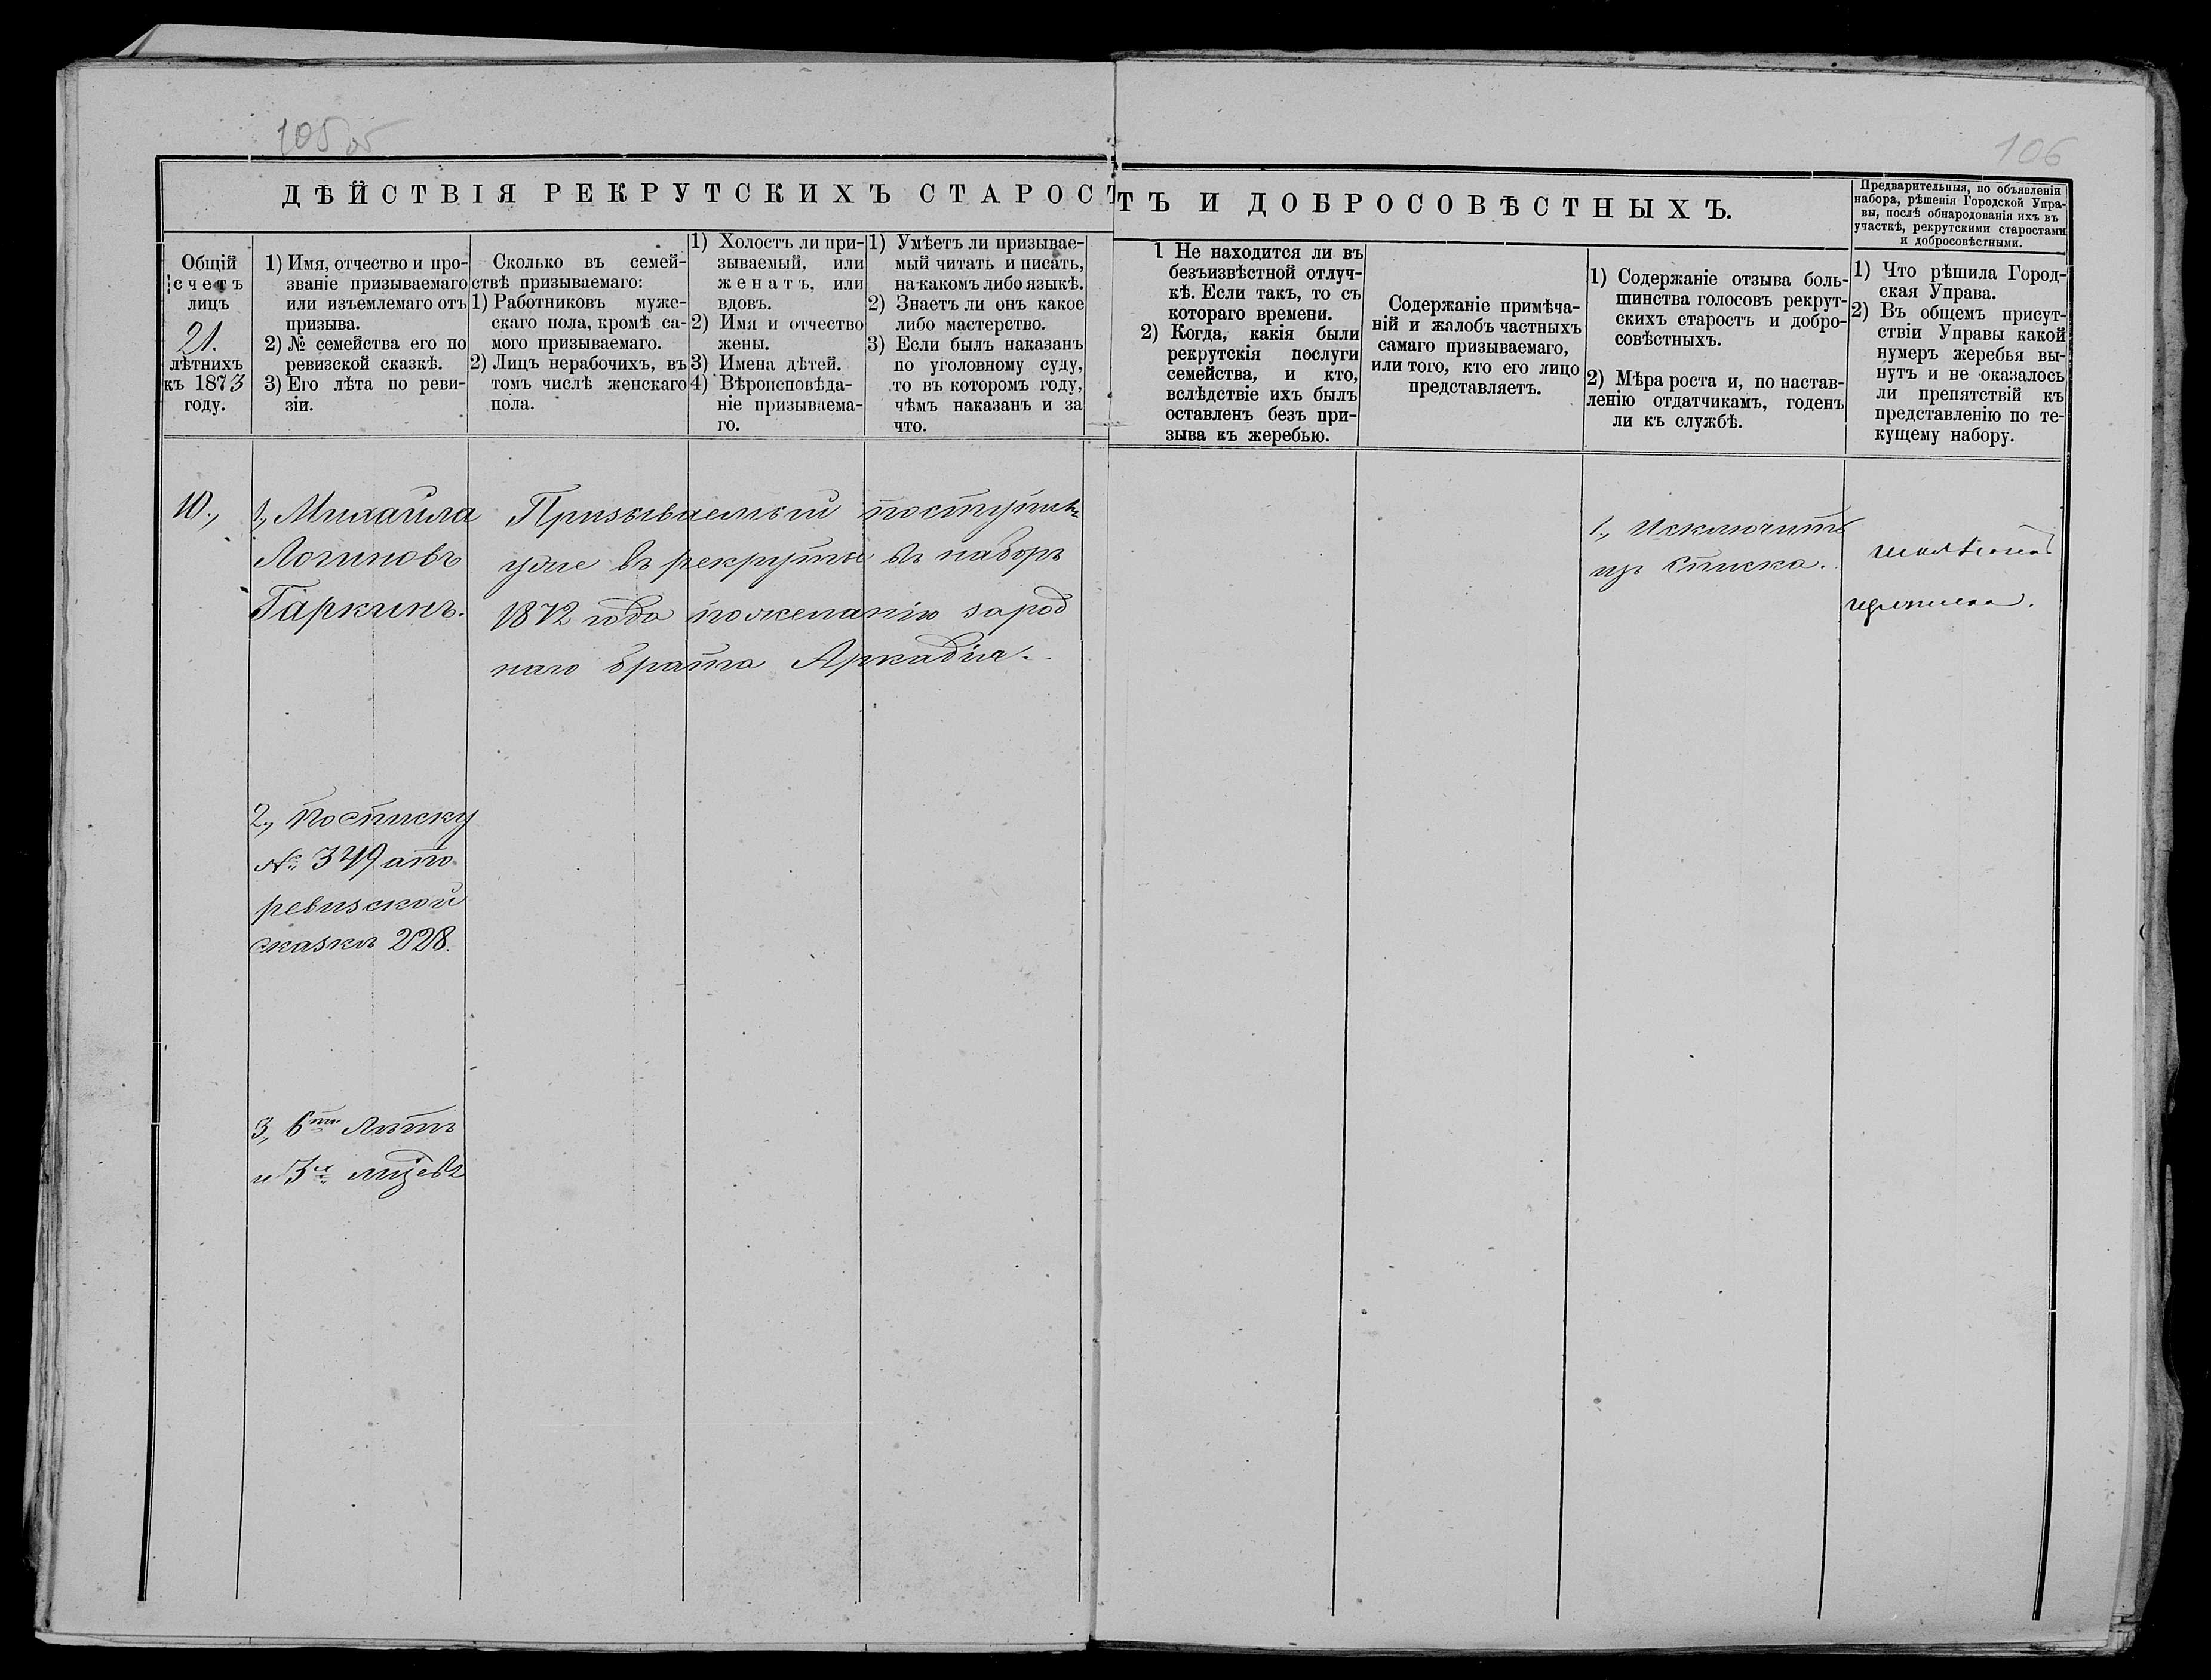 105 об
106
ДѢЙСТВІЯ РЕКРУТСКИХЪ СТАРОСТЪ И ДОБРОСОВѢСТНЫХЪ.
Предварительныя, по объявленіи
набора, рѣшенія Городской Упра-
вы, послѣ обнародованія ихъ въ
участкѣ, рекрутскими старостами
и добросовѣстными.
Общій
счетъ
лицъ
21.
лѣтнихъ
къ 1873
году.
1) Имя, отчество и про-
званіе призываемаго
или изъемлемаго отъ
призыва.
2) № семейства его по
ревизской сказкѣ.
3) Его лѣта по реви-
зіи.
Сколько въ семей-
ствѣ призываемаго:
1) Работниковъ муже-
скаго пола, кромѣ са-
мого призываемаго.
2) Лицъ нерабочихъ, въ
томъ числѣ женскаго
пола.
1) Холостъ ли при-
зываемый, или
женатъ, или
вдовъ.
2) Имя и отчество
жены.
3) Имена дѣтей.
4) Вѣроисповѣда-
ніе призываема-
го.
1) Умѣетъ ли призывае-
мый читать и писать,
на какомъ либо языкѣ.
2) Знаетъ ли онъ какое
либо мастерство.
3) Если былъ наказанъ
по уголовному суду,
то въ которомъ году,
чѣмъ наказанъ и за
что.
1 Не находится ли въ
безъизвѣстной отлуч-
кѣ. Если такъ, то съ
котораго времени.
2) Когда, какія были
рекрутскія послуги
семейства, и кто,
вслѣдствіе ихъ былъ
оставленъ безъ при-
зыва къ жеребью.
Содержаніе примѣча-
ній и жалобъ частныхъ
самаго призываемаго,
или того, кто его лицо
представляетъ.
1) Содержаніе отзыва боль-
шинства голосовъ рекрут-
скихъ старостъ и добро-
совѣстныхъ.
2) Мѣра роста и, по настав-
ленію отдатчикамъ, годенъ
ли къ службѣ.
1) Что рѣшила Город-
ская Управа.
2) Въ общемъ присут-
ствіи Управы какой
нумеръ жеребья вы-
нутъ и не оказалось
ли препятствій къ
представленію по те-
кущему набору.
10.,
1., Михаила
Логиновъ
Гаркинъ.
2., По списку
№ 349 а по
ревизской
сказкѣ 228.
3., 6ти лѣтъ
и 3х
Призываемый поступилъ
уже въ рекруты въ наборъ
1872 года по желанію за род
наго брата Аркадія.
1., Исключить
изъ списка.